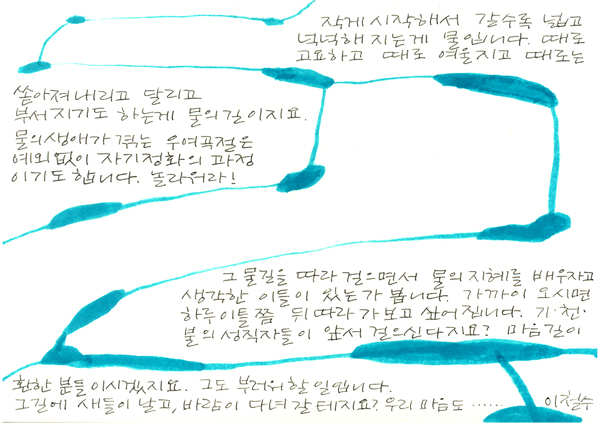 작게 시작해서 갈수록 넓고
넉넉해 지는게 물입니다. 때로
고요하고 때로 여울지고 때로는
쏟아져내리고 달리고
부서지기도 하는게 물의길이지요.
물의생애가 겪는 우여곡절은
예외없이 자기정화의 과정
이기도합니다. 놀라워라!
그 물길을 따라 걸으면서 물의 지혜를 배우자고
생각한 이들이 있는가 봅니다. 가까이 오시면
하루이틀 쯤 뒤따라 가보고 싶어집니다. 기·천·
불의 성직자들이 앞서 걸으신다지요? 마음길이
환한 분들이시겠지요. 그도 부러워할 일입니다.
그길에 새들이 날고, 바람이 다녀 갈 테지요? 우리 마음도 ‥‥‥ 이철수